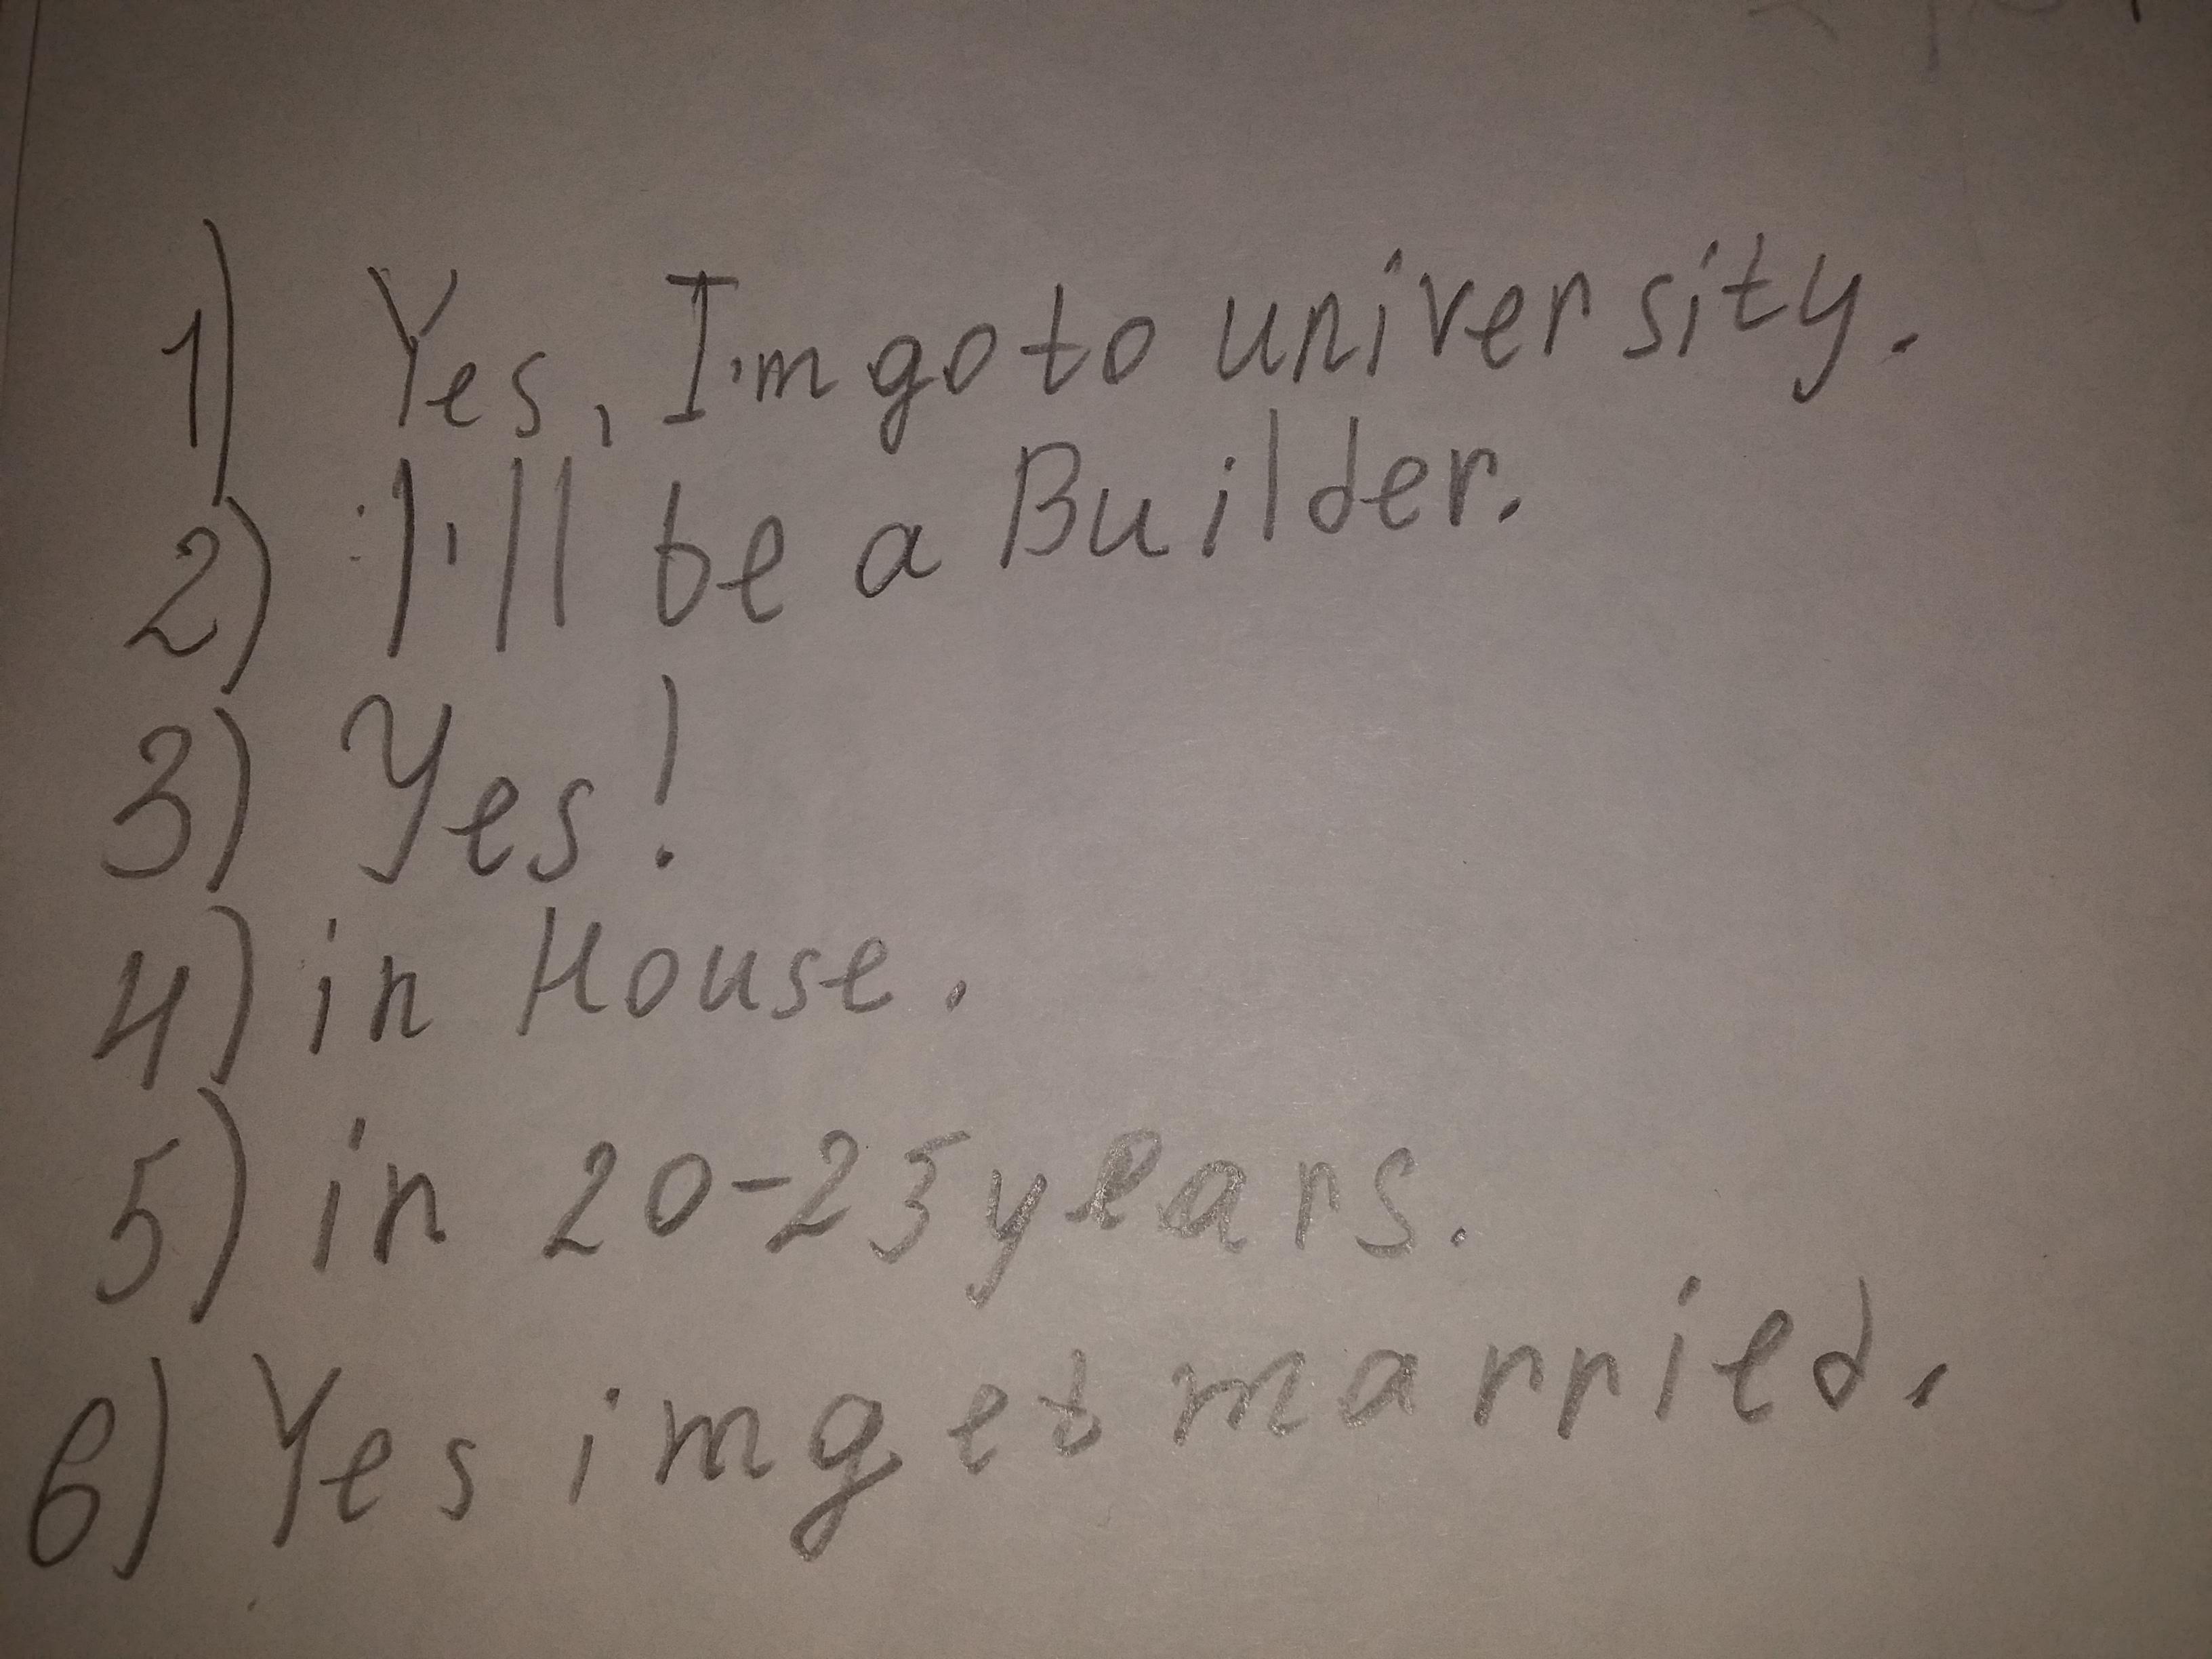 1) Yes, I'm go to university.
2) I'll be a Builder.
3) Yes!
4) in House.
5) in 20-25 years.
6) Yes im get married.